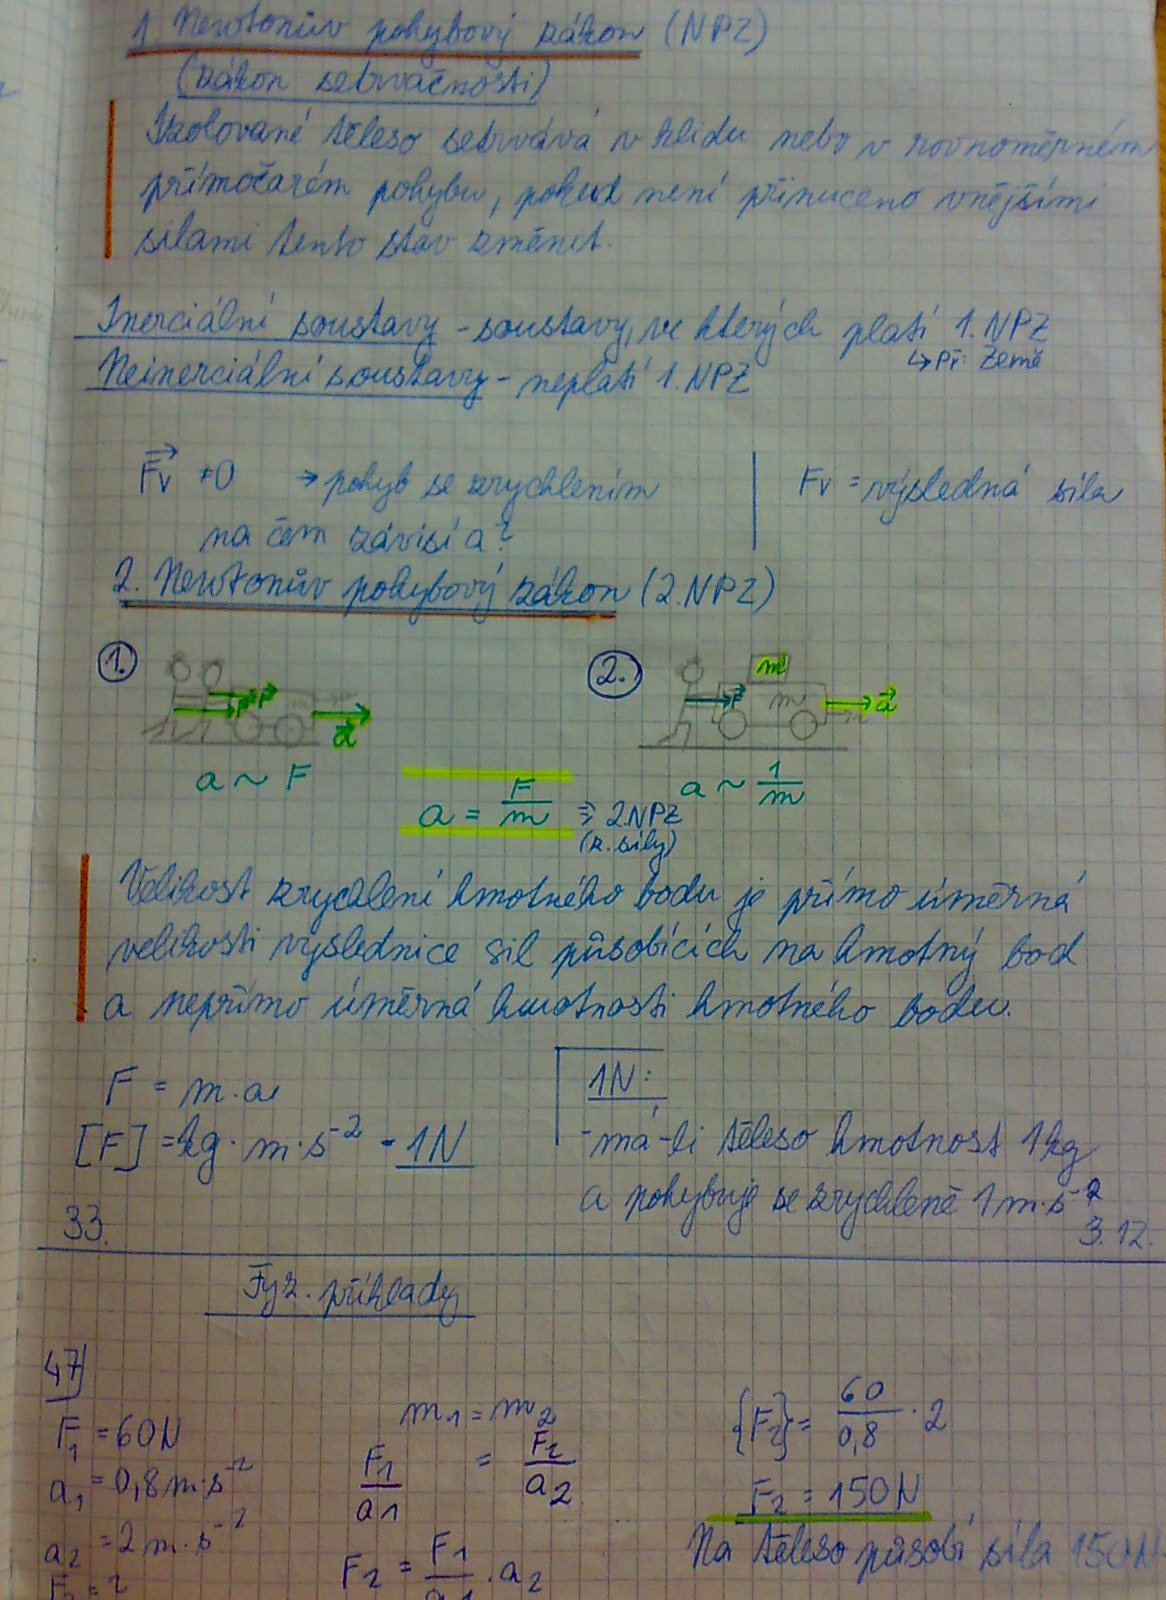 1. Newtonův pohybový zákon (NPZ)
(zákon setrvačnosti)
Izolované těleso setrvává v klidu nebo v rovnoměrném
přímočarém pohybu, pokud není přinuceno vnějšími
silami tento stav změnit.
Inerciální soustavy - soustavy, ve kterých platí 1. NPZ
↳ Př: Země
Neinerciální soustavy - neplatí 1. NPZ
Fv ≠ 0 → pohyb se zrychlením
Fv = výsledná síla
na čem závisí a?
2. Newtonův pohybový zákon (2. NPZ)
1.
F F
a
2.
m'
F m a
a ~ F
a ~ 1/m
a = F/m ⇒ 2.NPZ
(z. síly)
Velikost zrychlení hmotného bodu je přímo úměrná
velikosti výslednice sil působících na hmotný bod
a nepřímo úměrná hmotnosti hmotného bodu.
F = m · a
[F] = kg · m · s⁻² = 1N
1N:
- má-li těleso hmotnost 1kg
a pohybuje se zrychleně 1m·s⁻²
33.
3. 12.
Fyz. příklady
47)
F₁ = 60N
a₁ = 0,8 m·s⁻²
a₂ = 2 m·s⁻²
F₂ = ?
m₁ = m₂
F₁/a₁ = F₂/a₂
F₂ = F₁/a₁ · a₂
{F₂} = 60/0,8 · 2
F₂ = 150N
Na těleso působí síla 150N